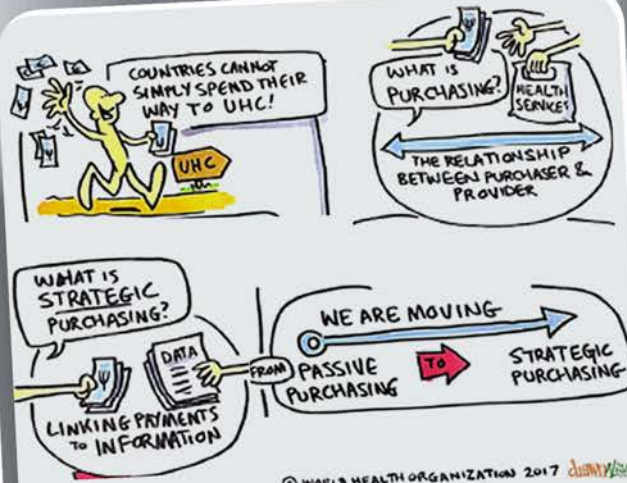 COUNTRIES CANNOT
SIMPLY SPEND THEIR
WAY TO UHC!
UHC
WHAT IS
PURCHASING?
HEALTH
SERVICES
THE RELATIONSHIP
BETWEEN PURCHASER &
PROVIDER
WHAT IS
STRATEGIC
PURCHASING?
DATA
LINKING PAYMENTS
TO INFORMATION
WE ARE MOVING
FROM PASSIVE
PURCHASING
TO
STRATEGIC
PURCHASING
© WORLD HEALTH ORGANIZATION 2017